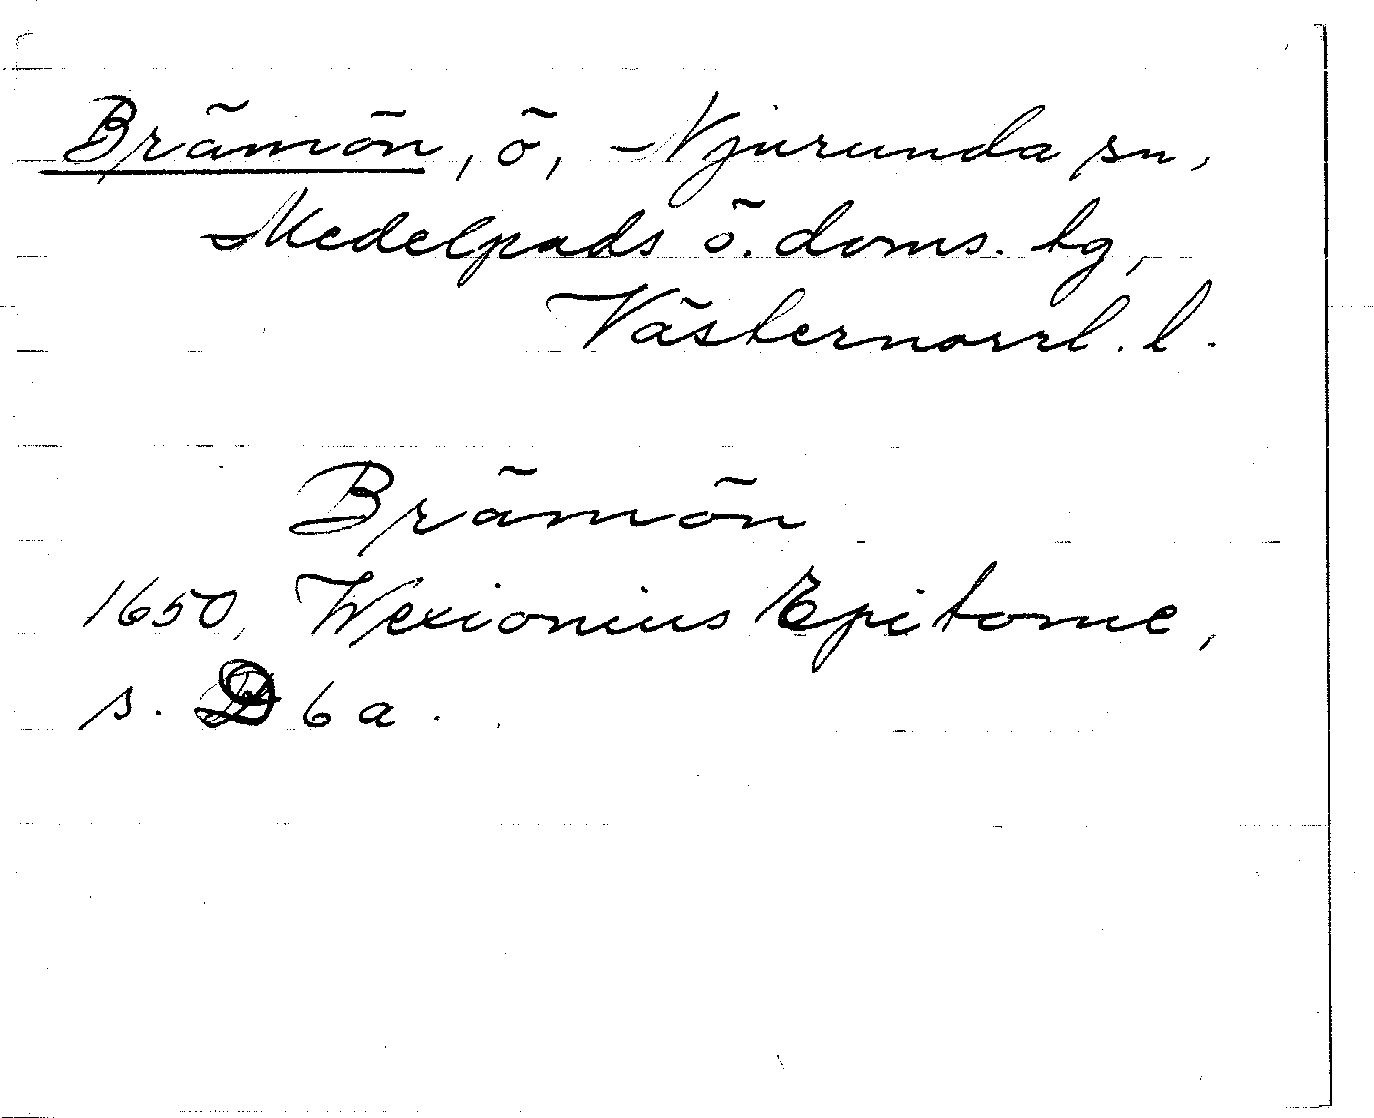 Brämön, ö, Njurunda sn,
Medelpads ö. doms. tg,
Västernorrl. l.
Brämön
1650, Wexionius Epitome,
s. D 6 a.